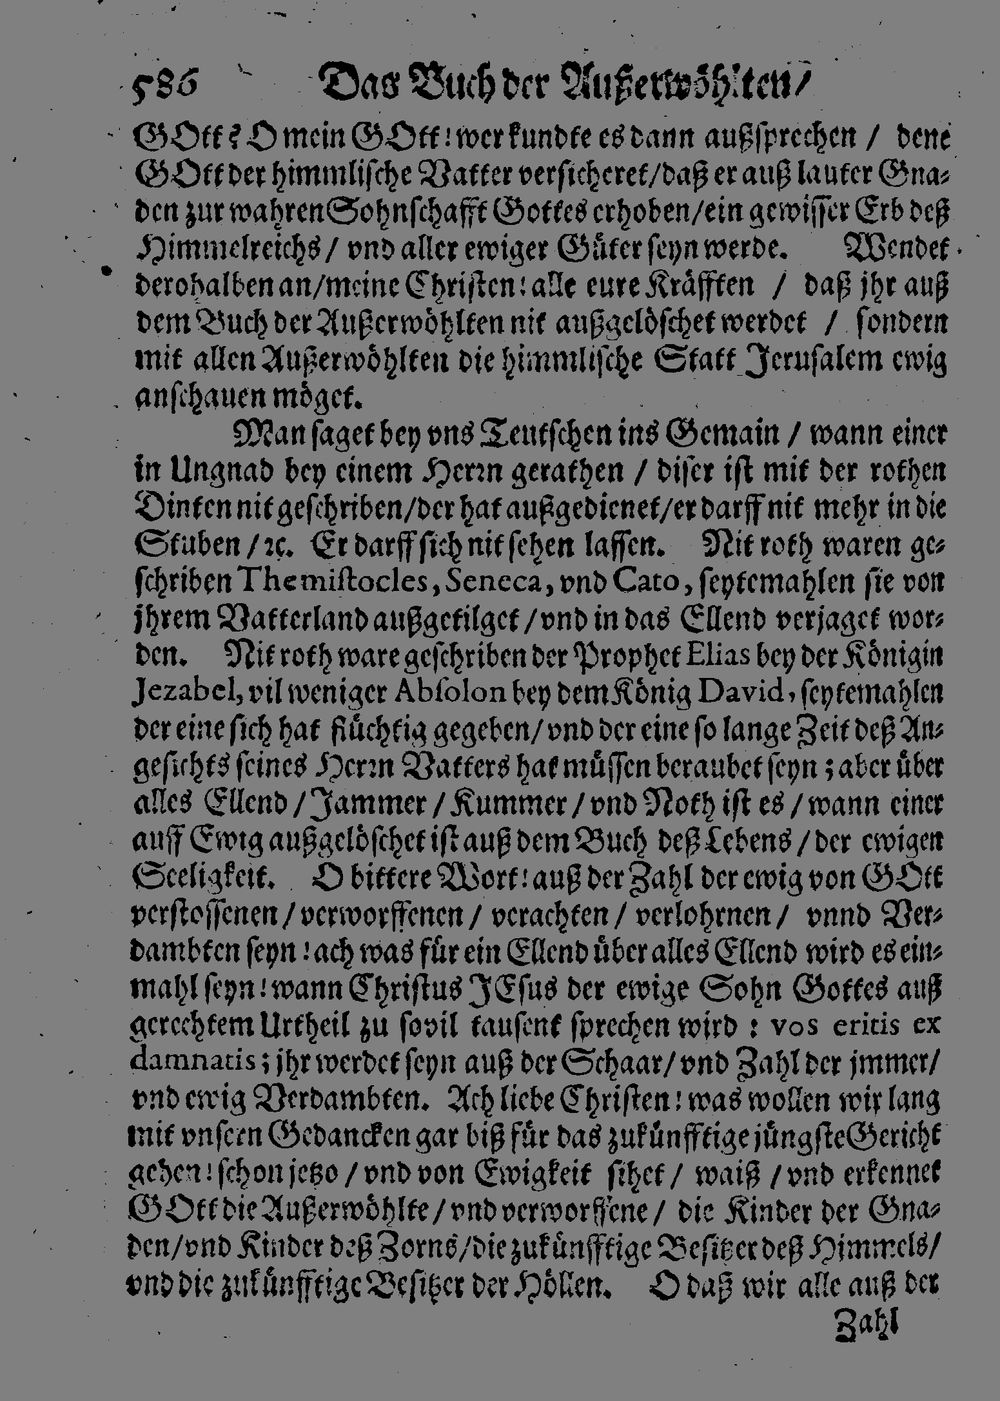 586 Das Buch der Außerwöhlten/
GOtt? O mein GOtt! wer kundte es dann außsprechen / dene
GOtt der himmlische Vatter versicheret/daß er auß lauter Gna-
den zur wahren Sohnschafft Gottes erhoben/ein gewisser Erb deß
Himmelreichs/ vnd aller ewiger Güter seyn werde. Wendet
derohalben an/meine Christen! alle eure Kräfften / daß jhr auß
dem Buch der Außerwöhlten nit außgelöschet werdet / sondern
mit allen Außerwöhlten die himmlische Statt Jerusalem ewig
anschauen möget.
Man saget bey vns Teutschen ins Gemain / wann einer
in Ungnad bey einem Herrn gerathen / diser ist mit der rothen
Dinten nit geschriben/der hat außgedienet/er darff nit mehr in die
Stuben /ꝛc. Er darff sich nit sehen lassen. Nit roth waren ge-
schriben Themistocles, Seneca, vnd Cato, seytemahlen sie von
jhrem Vatterland außgetilget /vnd in das Ellend verjaget wor-
den. Nit roth ware geschriben der Prophet Elias bey der Königin
Jezabel, vil weniger Absolon bey dem König David, seytemahlen
der eine sich hat flüchtig gegeben/ vnd der eine so lange Zeit deß An-
gesichts seines Herrn Vatters hat müssen beraubet seyn ; aber über
alles Ellend /Jammer /Kummer /vnd Noth ist es /wann einer
auff Ewig außgelöschet ist auß dem Buch deß Lebens /der ewigen
Seeligkeit. O bittere Wort! auß der Zahl der ewig von GOtt
verstossenen / verworffenen / verachten / verlohrnen / vnnd Ver-
dambten seyn! ach was für ein Ellend über alles Ellend wird es ein-
mahl seyn! wann Christus JEsus der ewige Sohn Gottes auß
gerechtem Urtheil zu sovil tausent sprechen wird : vos eritis ex
damnatis; jhr werdet seyn auß der Schaar/ vnd Zahl der jmmer/
vnd ewig Verdambten. Ach liebe Christen! was wollen wir lang
mit vnseren Gedancken gar biß für das zukünfftige jüngste Gericht
gehen! schon jetzo / vnd von Ewigkeit sihet / waiß / vnd erkennet
GOtt die Außerwöhlte/ vnd verworffene / die Kinder der Gna-
den/vnd Kinder deß Zorns/die zukünfftige Besitzer deß Himmels/
vnd die zukünfftige Besitzer der Höllen. O daß wir alle auß der
Zahl